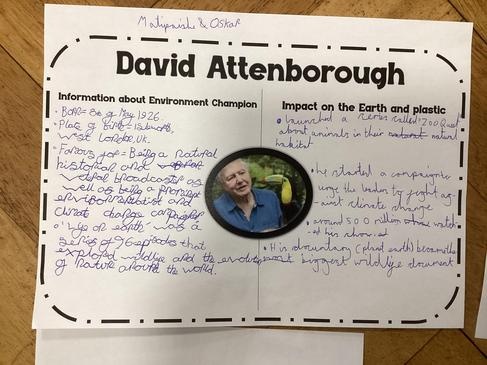 & Oskar
David Attenborough
Information about Environment Champion
• Born= 8th of May 1926.
• Place of birth= Isleworth,
West London, UK.
• Famous for= Being a natural
historian and
broadcaster as
well as being a prominent
environmentalist and
climate change campaigner
• 'Life on earth' was a
series of 96 episodes that
explored wildlife and the
of nature around the world.
Impact on the Earth and plastic
• launched a series called 'Zoo Quest
about animals in their natural
habitat
• he started a campaign to
urge the leaders to fight ag-
ainst climate change
• around 500 million watch-
ed his show
• His documentary (planet earth)
biggest wildlife document